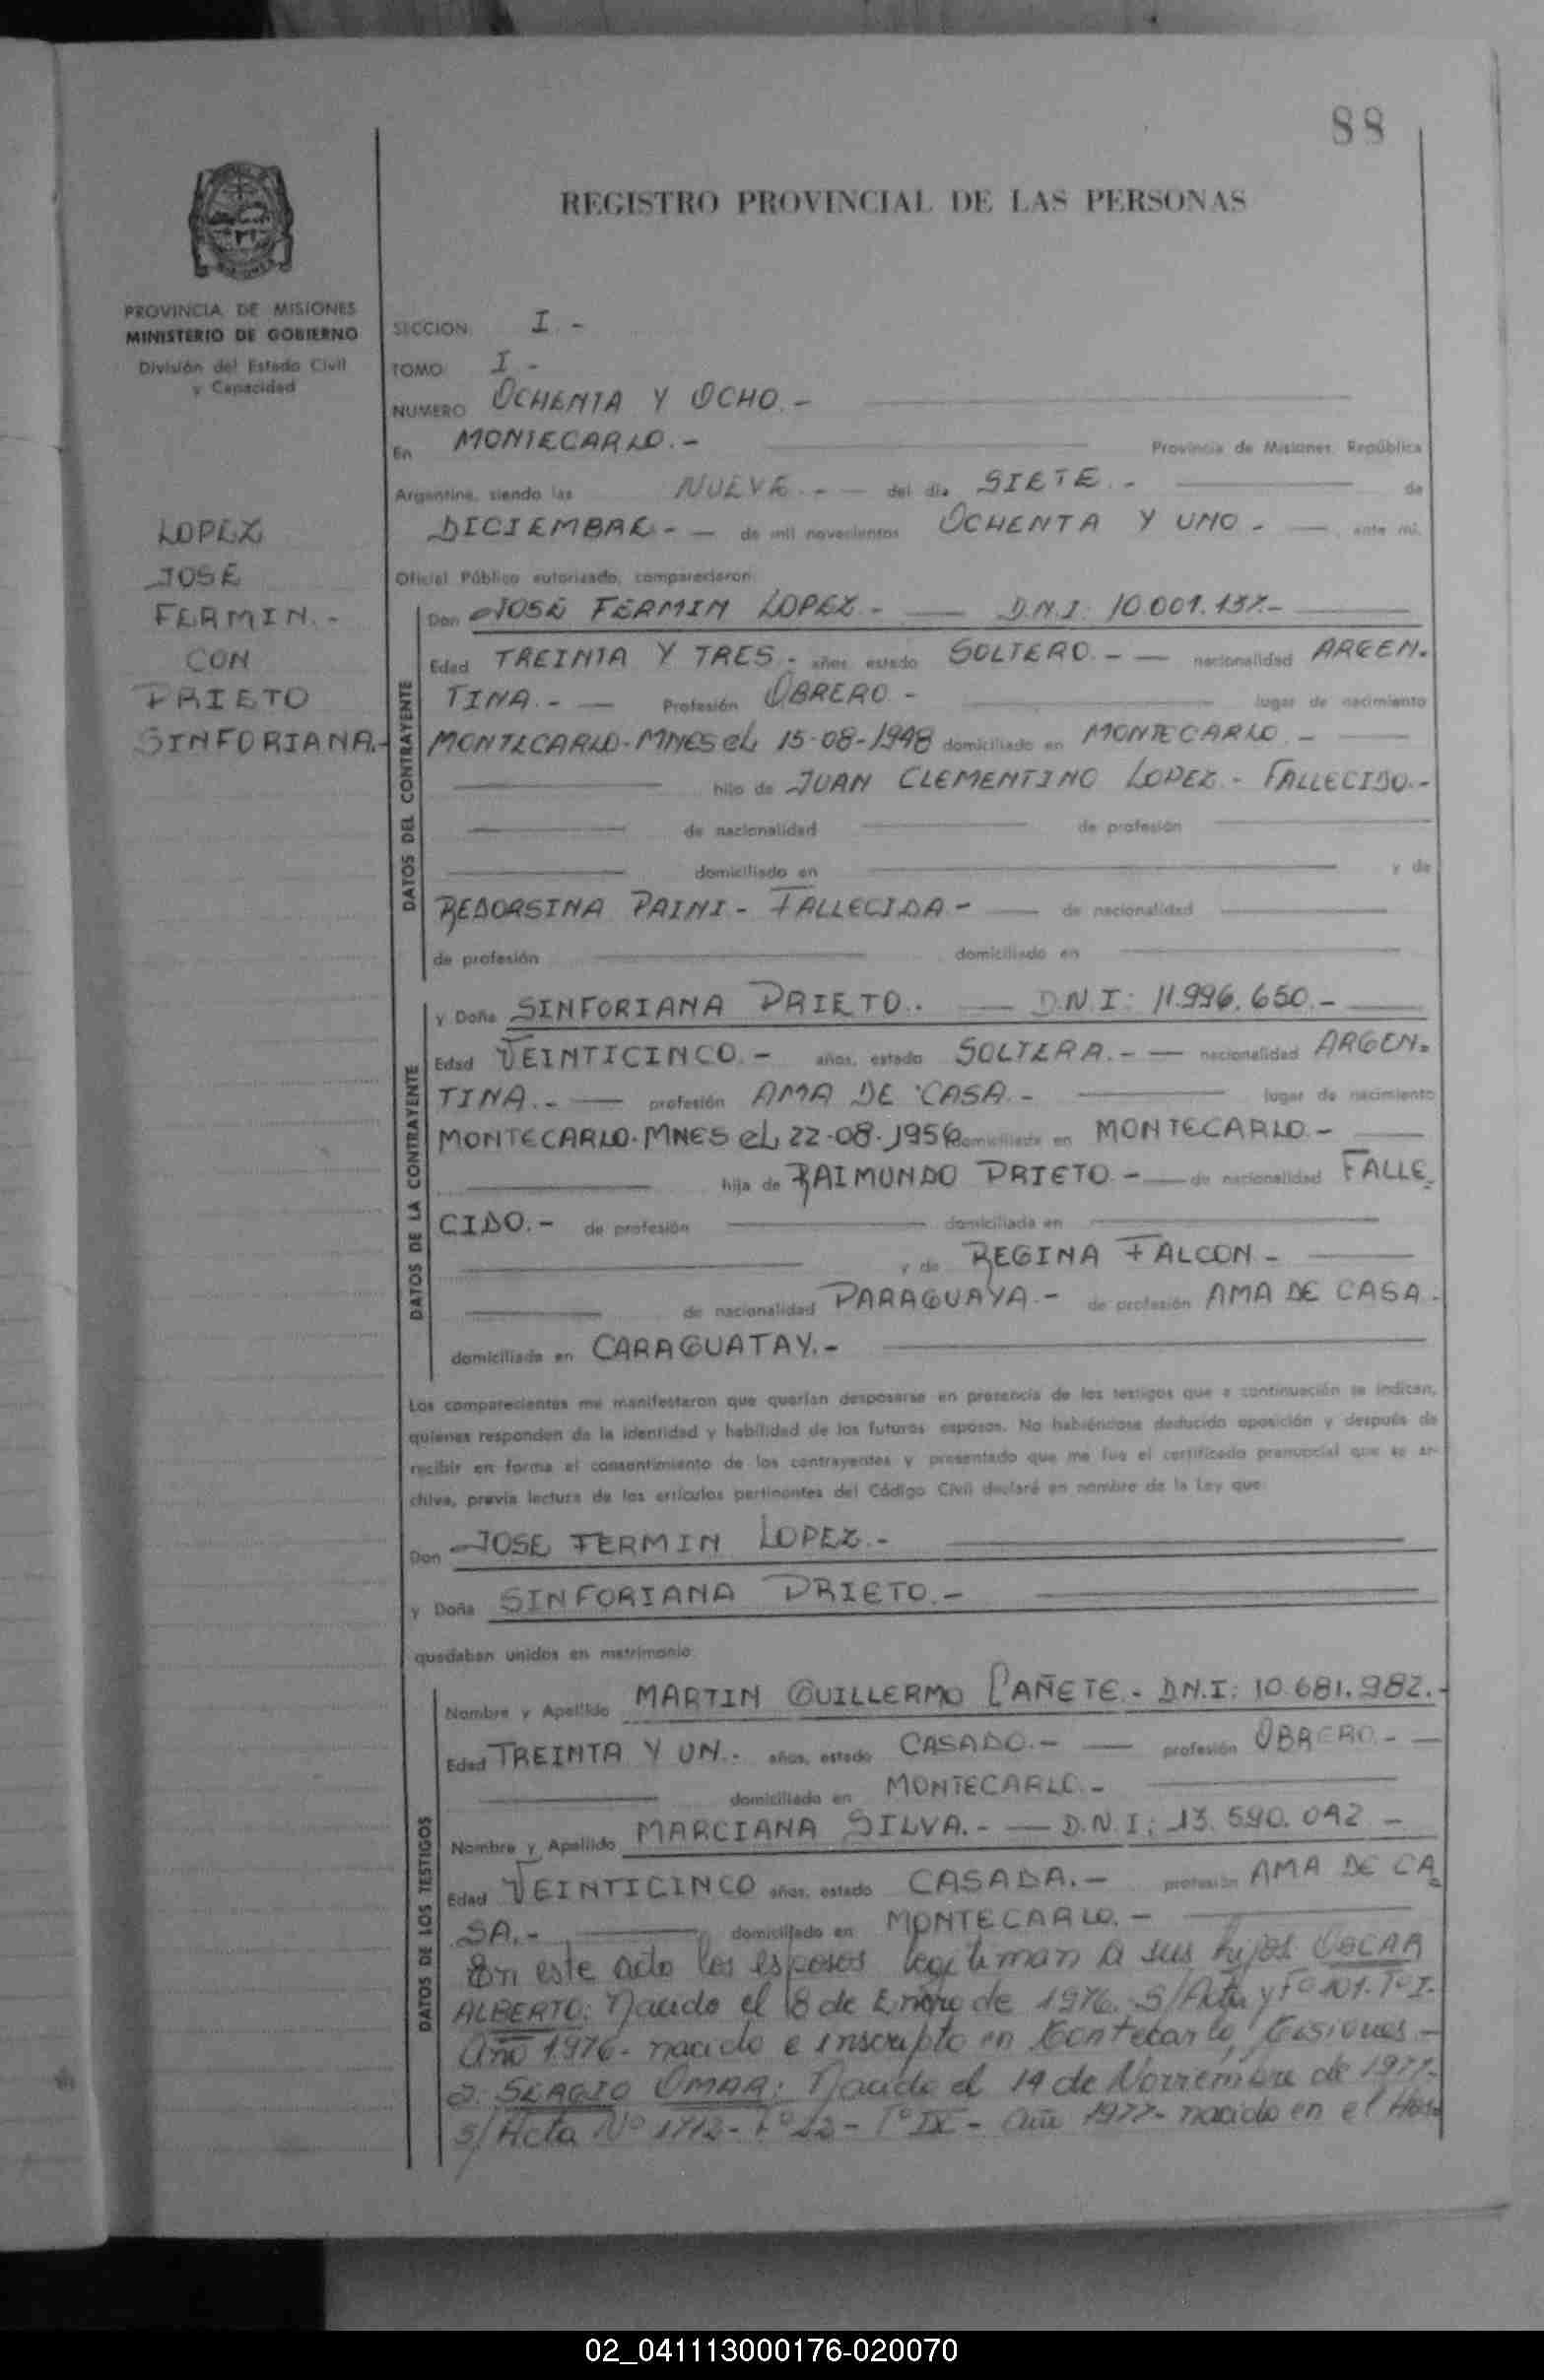 88
REGISTRO PROVINCIAL DE LAS PERSONAS
PROVINCIA DE MISIONES
MINISTERIO DE GOBIERNO
División del Estado Civil
y Capacidad
LOPEZ
JOSE
FERMIN.-
CON
PRIETO
SINFORIANA.-
SECCION I.-
TOMO I-
NUMERO OCHENTA Y OCHO.-
En MONTECARLO.- Provincia de Misiones, República
Argentina, siendo las NUEVE.- del día SIETE.- de
DICIEMBRE.- de mil novecientos OCHENTA Y UNO.- ante mí,
Oficial Público autorizado, comparecieron:
DATOS DEL CONTRAYENTE
Don JOSE FERMIN LOPEZ.- D.N.I: 10.001.137.-
Edad TREINTA Y TRES.- años, estado SOLTERO.- nacionalidad ARGEN-
TINA.- Profesión OBRERO.- lugar de nacimiento
MONTECARLO-MNES EL 15-08-1948 domiciliado en MONTECARLO.-
hijo de JUAN CLEMENTINO LOPEZ.- FALLECIDO.-
de nacionalidad de profesión
domiciliado en y de
PAINI- FALLECIDA- de nacionalidad
de profesión domiciliado en
DATOS DE LA CONTRAYENTE
y Doña SINFORIANA PRIETO.- D.N.I: 11.996.650.-
Edad VEINTICINCO.- años, estado SOLTERA.- nacionalidad ARGEN-
TINA.- profesión AMA DE CASA.- lugar de nacimiento
MONTECARLO-MNES EL 22-08-1956 domiciliada en MONTECARLO.-
hija de RAIMUNDO PRIETO.- de nacionalidad FALLE-
CIDO.- de profesión domiciliada en
y de REGINA FALCON-
de nacionalidad PARAGUAYA.- de profesión AMA DE CASA.
domiciliada en CARAGUATAY.-
Los comparecientes me manifestaron que querían desposarse en presencia de los testigos que a continuación se indican,
quienes responden de la identidad y habilidad de los futuros esposos. No habiéndose deducido oposición y después de
recibir en forma el consentimiento de los contrayentes y presentado que me fue el certificado prenupcial que se ar-
chiva, previa lectura de los artículos pertinentes del Código Civil declaré en nombre de la Ley que:
Don JOSE FERMIN LOPEZ.-
y Doña SINFORIANA PRIETO.-
quedaban unidos en matrimonio
DATOS DE LOS TESTIGOS
Nombre y Apellido MARTIN GUILLERMO CAÑETE.- D.N.I: 10.681.982.-
Edad TREINTA Y UN.- años, estado CASADO.- profesión OBRERO.-
domiciliado en MONTECARLO.-
Nombre y Apellido MARCIANA SILVA.- D.N.I: 13.590.042-
Edad VEINTICINCO años, estado CASADA.- profesión AMA DE CA
SA.- domiciliado en MONTECARLO.-
En este acto los esposos legitiman a sus hijos OSCAR
ALBERTO: Nacido el 8 de Enero de 1976. S/Acta y Fº 101. Tº I.
Año 1976- nacido e inscripto en Montecarlo, Misiones.-
a: SERGIO OMAR: Nacido el 14 de Noviembre de 1977-
S/Acta Nº 1712- Fº 22- Tº IX- Año 1977- nacido en el Hos-
02_041113000176-020070